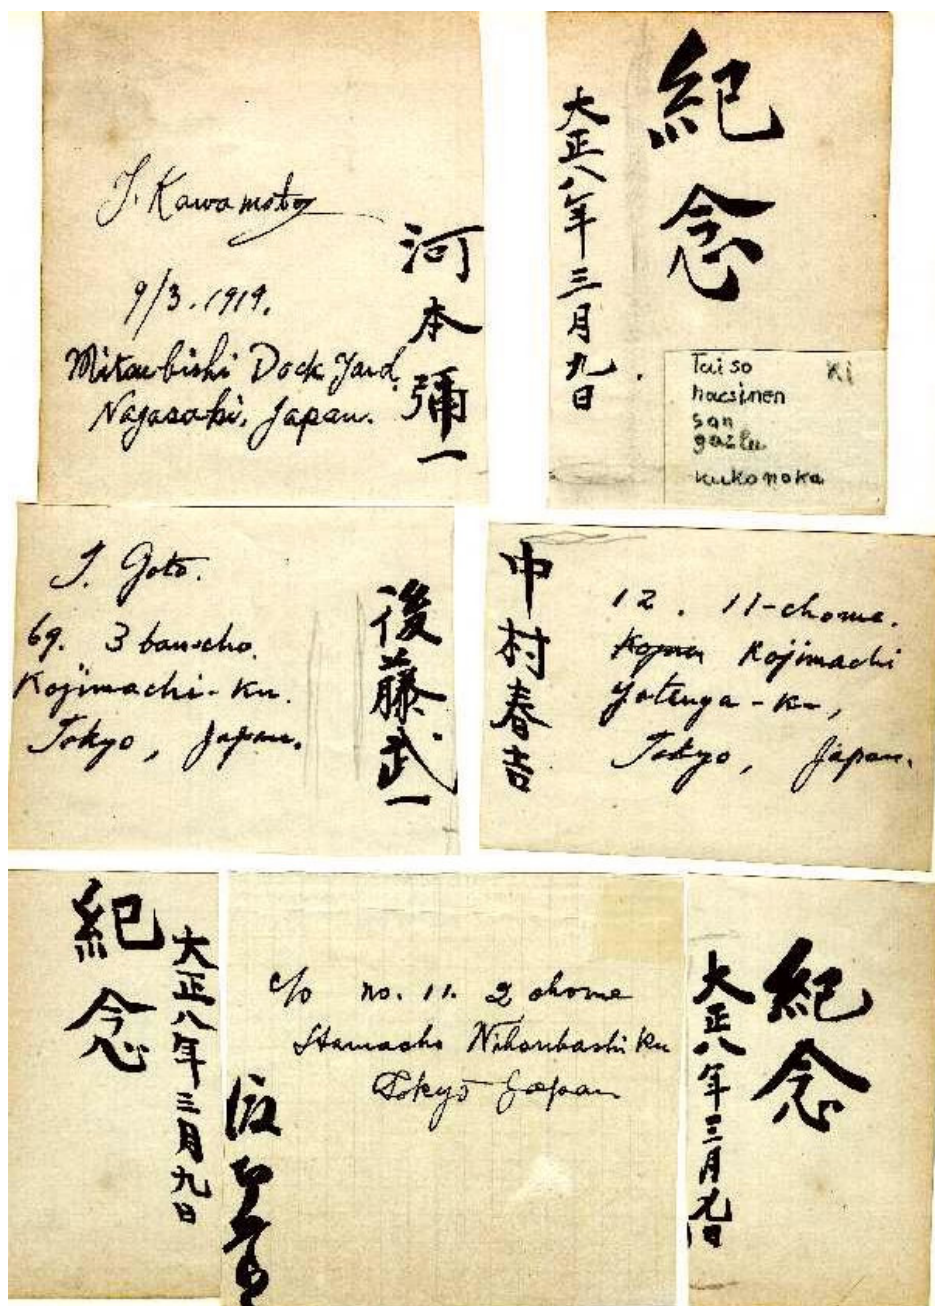 J. Kawamoto
9/3.1919.
Mitsubishi Dock Yard,
Nagasaki, Japan.
河本彌一
紀念
大正八年三月九日
Ki
Taiso
hacsinen
san
gazlu
kukonoka
J. Goto.
69. 3 bancho.
Kojimachi-Ku.
Tokyo, Japan.
後藤武一
中村春吉
12. 11-chome.
Kojimachi
Yotsuya-Ku,
Tokyo, Japan.
紀念
大正八年三月九日
c/o no. 11. 2 chome
Nihonbashi Ku
Tokyo Japan
紀念
大正八年三月九日